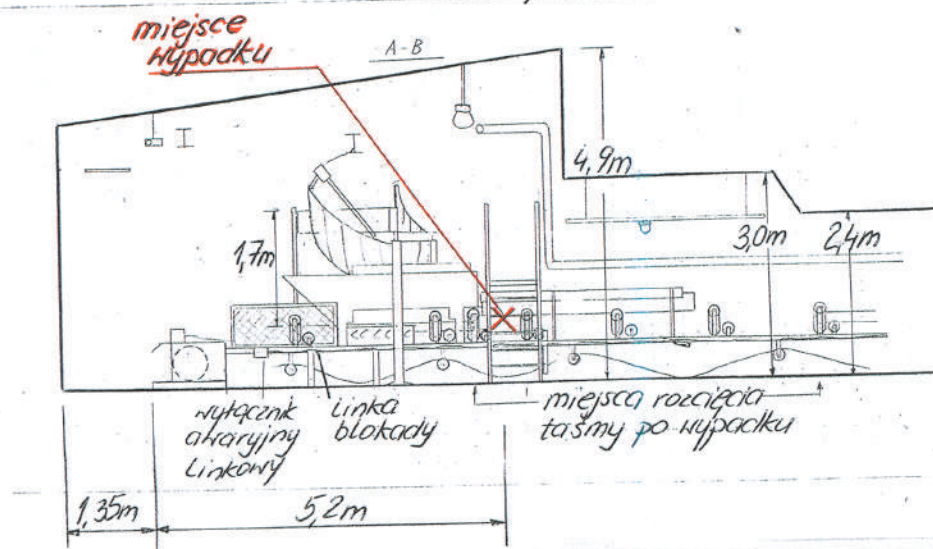 miejsce
wypadku
A-B
4,9m
1,7m
3,0m
2,4m
wyłącznik
awaryjny
linkowy
linka
blokady
miejsca rozcięcia
taśmy po wypadku
1,35m
5,2m